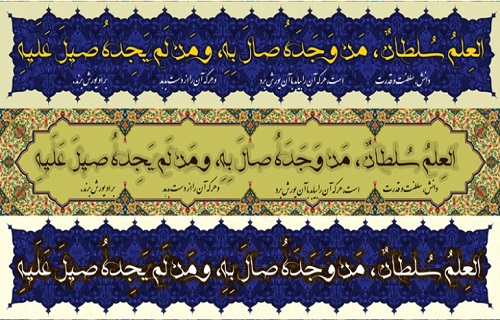 العِلمُ سُلطانٌ، مَن وَجَدَهُ صالَ بِهِ، ومَن لَم يَجِدهُ صيلَ عَلَيهِ
دانش، سلطنت و قدرت است، هر که آن را بیابد با آن یورش برد و هر که آن را از دست بدهد بر او یورش برند.
العِلمُ سُلطانٌ، مَن وَجَدَهُ صالَ بِهِ، ومَن لَم يَجِدهُ صيلَ عَلَيهِ
دانش، سلطنت و قدرت است، هر که آن را بیابد با آن یورش برد و هر که آن را از دست بدهد بر او یورش برند.
العِلمُ سُلطانٌ، مَن وَجَدَهُ صالَ بِهِ، ومَن لَم يَجِدهُ صيلَ عَلَيهِ